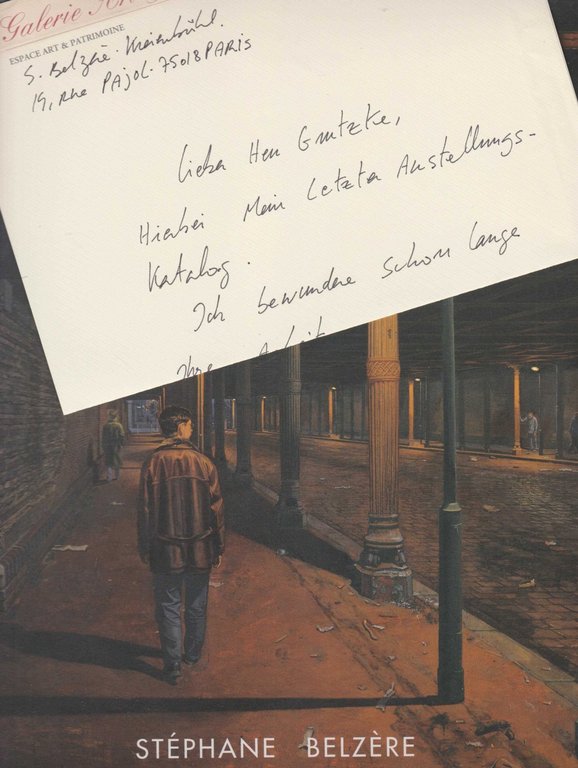 Galerie
ESPACE ART & PATRIMOINE
S. Belzère. Kreienbühl.
19, Rue PAJOL. 75018 PARIS
Lieber Herr Grutzke,
Hierbei Mein Letzter Anstellungs-
Katalog.
Ich bewundere schon lange
Ihre Arbeit
STÉPHANE BELZÈRE